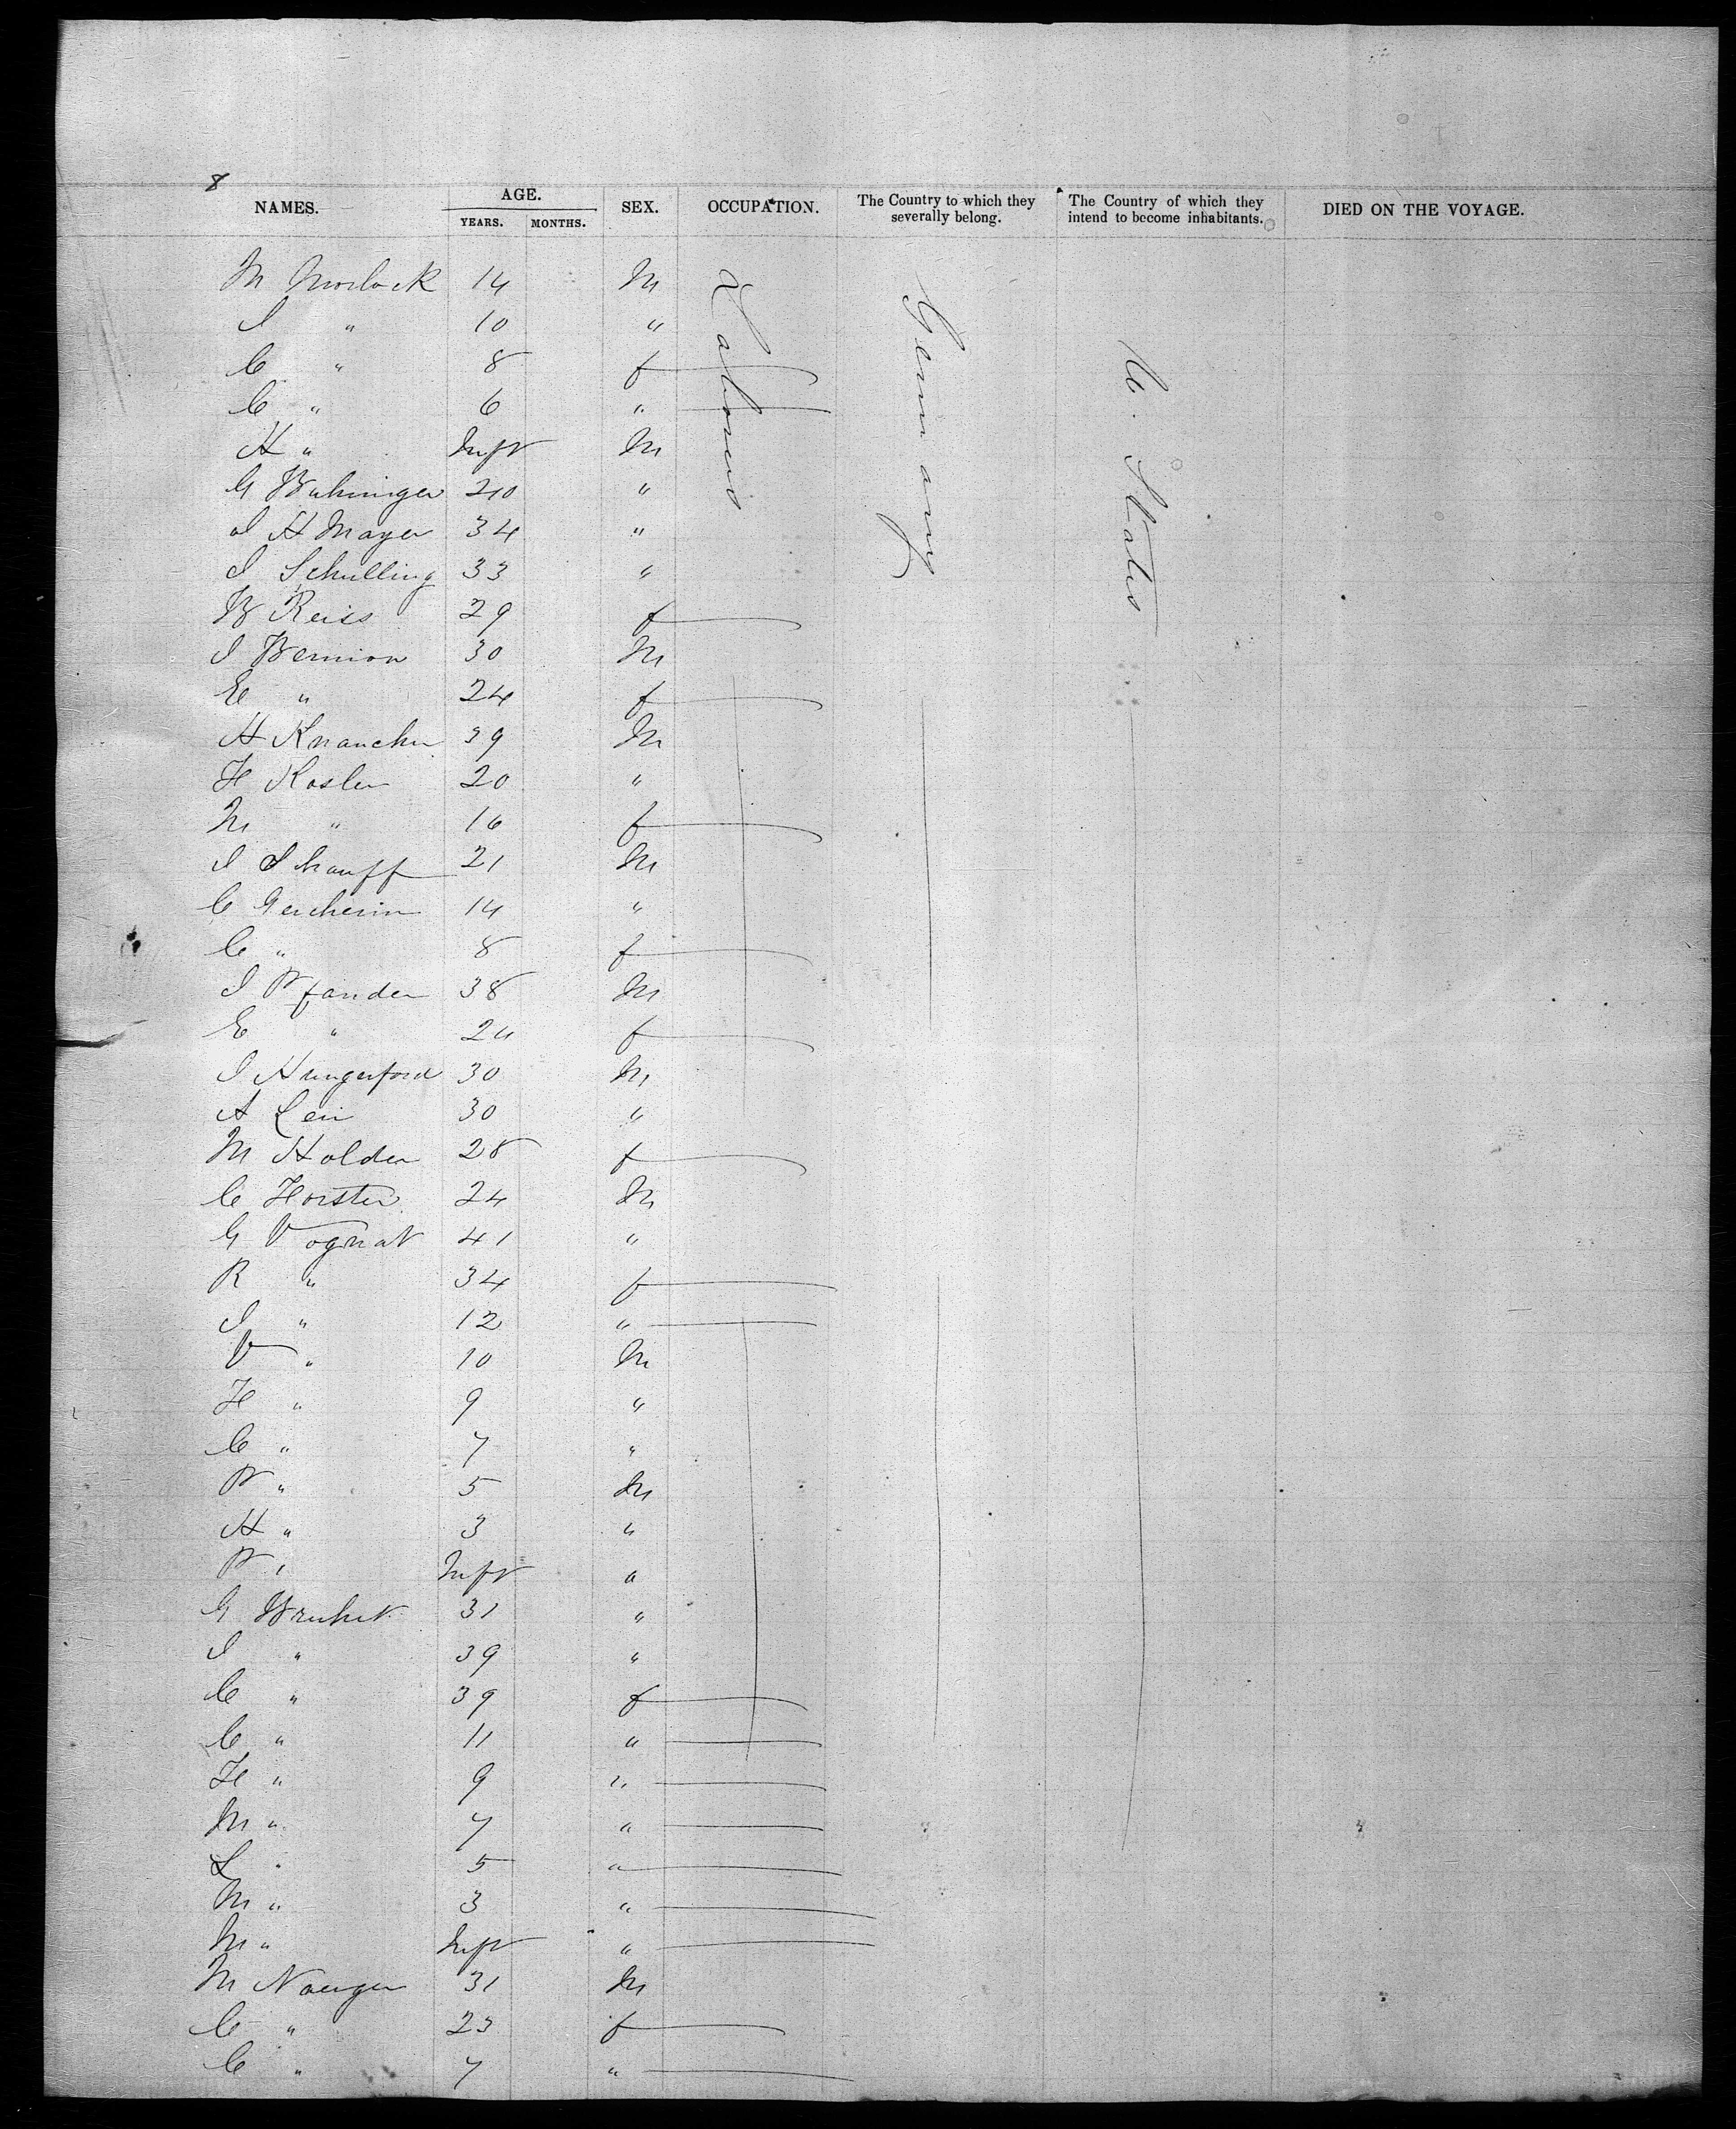 8
NAMES. AGE. YEARS. MONTHS. SEX. OCCUPATION. The Country to which they severally belong. The Country of which they intend to become inhabitants. DIED ON THE VOYAGE.
Laborers Germany U. States
M Morlock 14 M
J " 10 "
C " 8 f
C " 6 "
H " Inft M
G 20 "
J H Mayer 34 "
J Schulling 33 "
W Reiss 29 f
J 30 M
E " 24 f
H 39 M
F Kosler 20 "
M " 16 f
J 21 M
C 14 "
C " 8 f
J Pfander 38 M
E " 24 f
J Hungerford 30 M
A 30 "
M Holder 28 f
C Horster 24 M
G Vognat 41 "
R " 34 f
J " 12 "
V " 10 M
F " 9 "
C " 7 "
P " 5 M
H " 3 "
P " Inft "
G 31 "
J " 39 "
C " 39 f
C " 11 "
F " 9 "
M " 7 "
L " 5 "
M " 3 "
M " Inft "
M 31 M
C " 23 f
C " 7 "